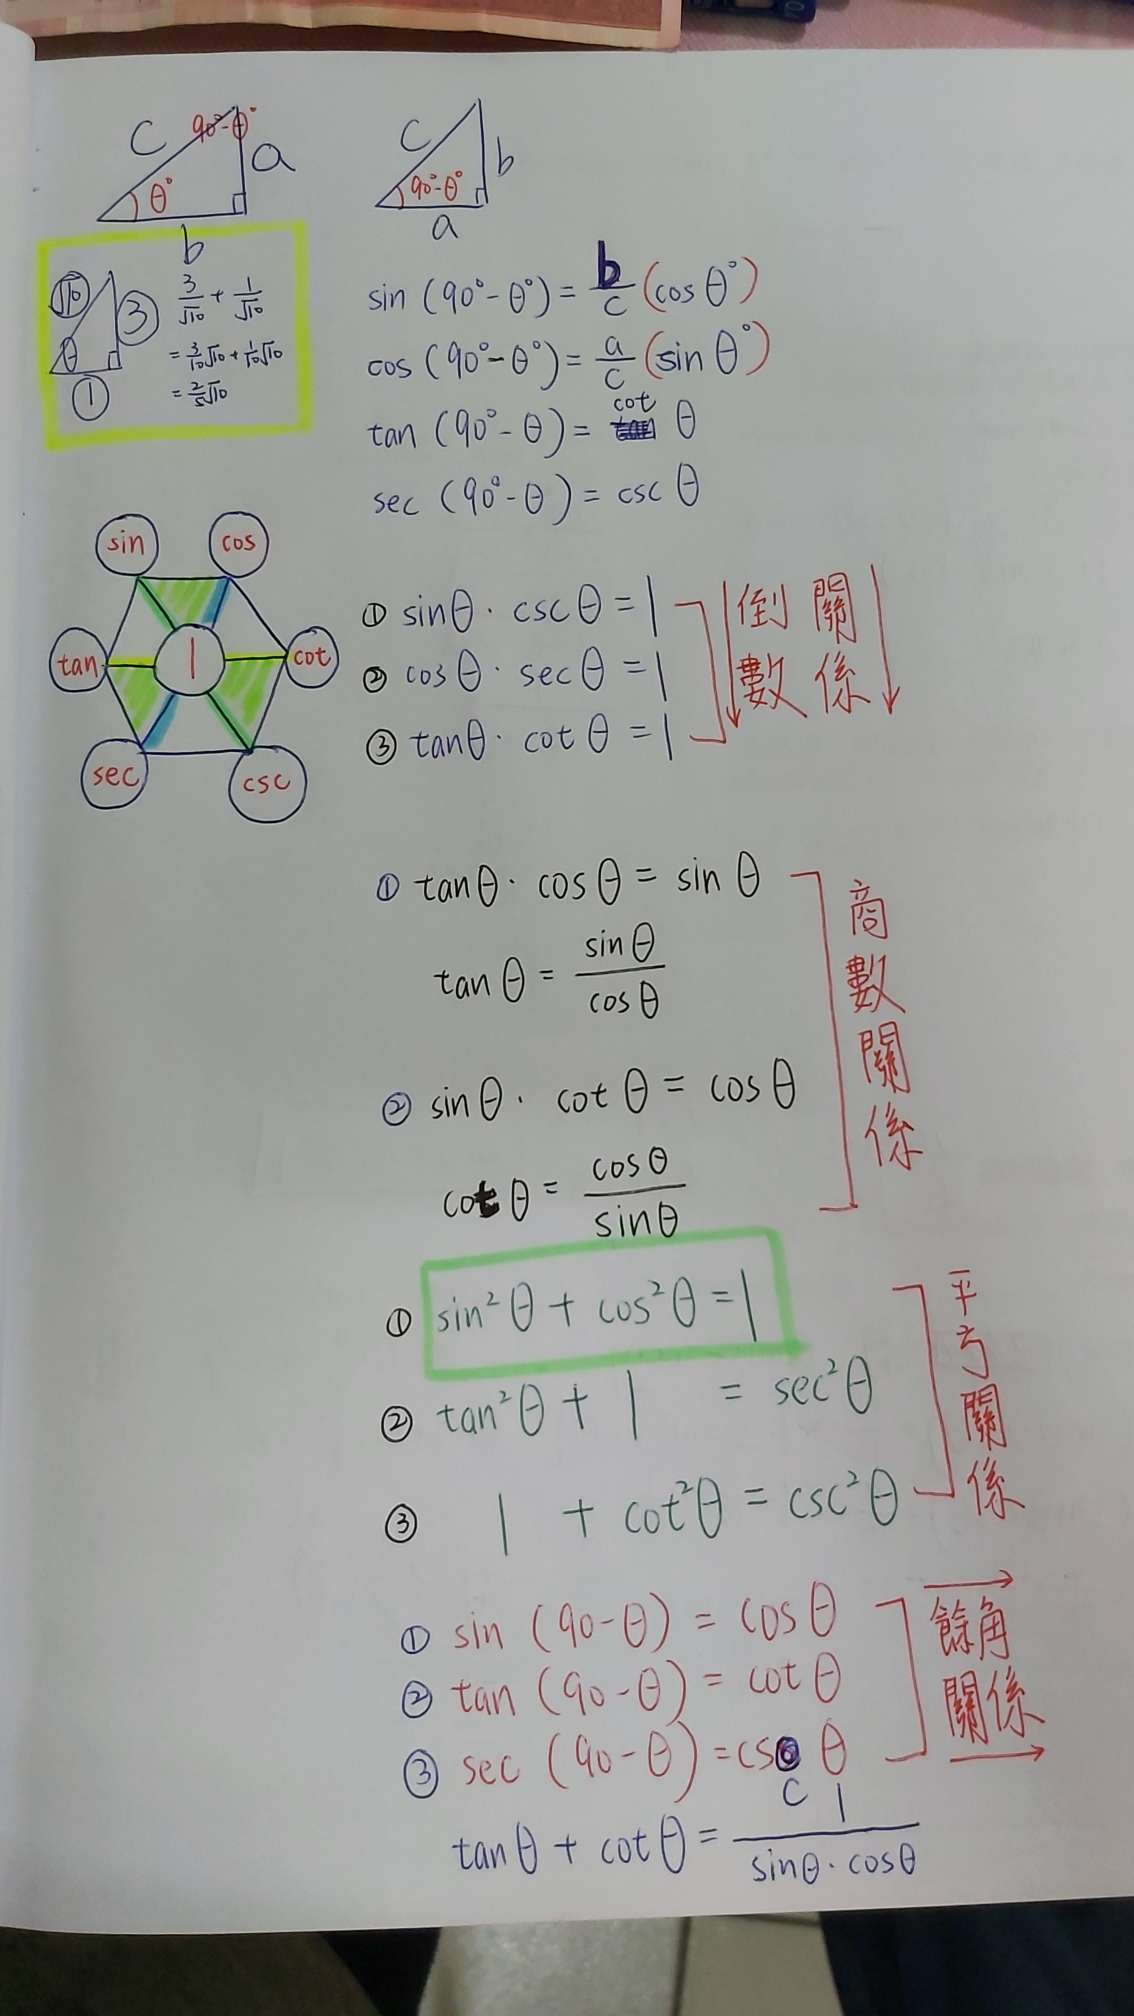 c 90°-θ° a
θ°
b
c b
90°-θ°
a
√10 3 θ 1
3/√10 + 1/√10
= 3/10√10 + 1/10√10
= 2/5√10
sin (90°-θ°) = b/c (cosθ°)
cos (90°-θ°) = a/c (sinθ°)
tan (90°-θ) = cot θ
sec (90°-θ) = csc θ
sin cos
tan 1 cot
sec csc
① sinθ · cscθ = 1
② cosθ · secθ = 1
③ tanθ · cotθ = 1
倒數
關係
① tanθ · cosθ = sinθ
tanθ = sinθ/cosθ
② sinθ · cotθ = cosθ
cotθ = cosθ/sinθ
商數關係
① sin²θ + cos²θ = 1
② tan²θ + 1 = sec²θ
③ 1 + cot²θ = csc²θ
平方關係
① sin (90-θ) = cosθ
② tan (90-θ) = cotθ
③ sec (90-θ) = csc θ
餘角
關係
tanθ + cotθ = 1/sinθ·cosθ